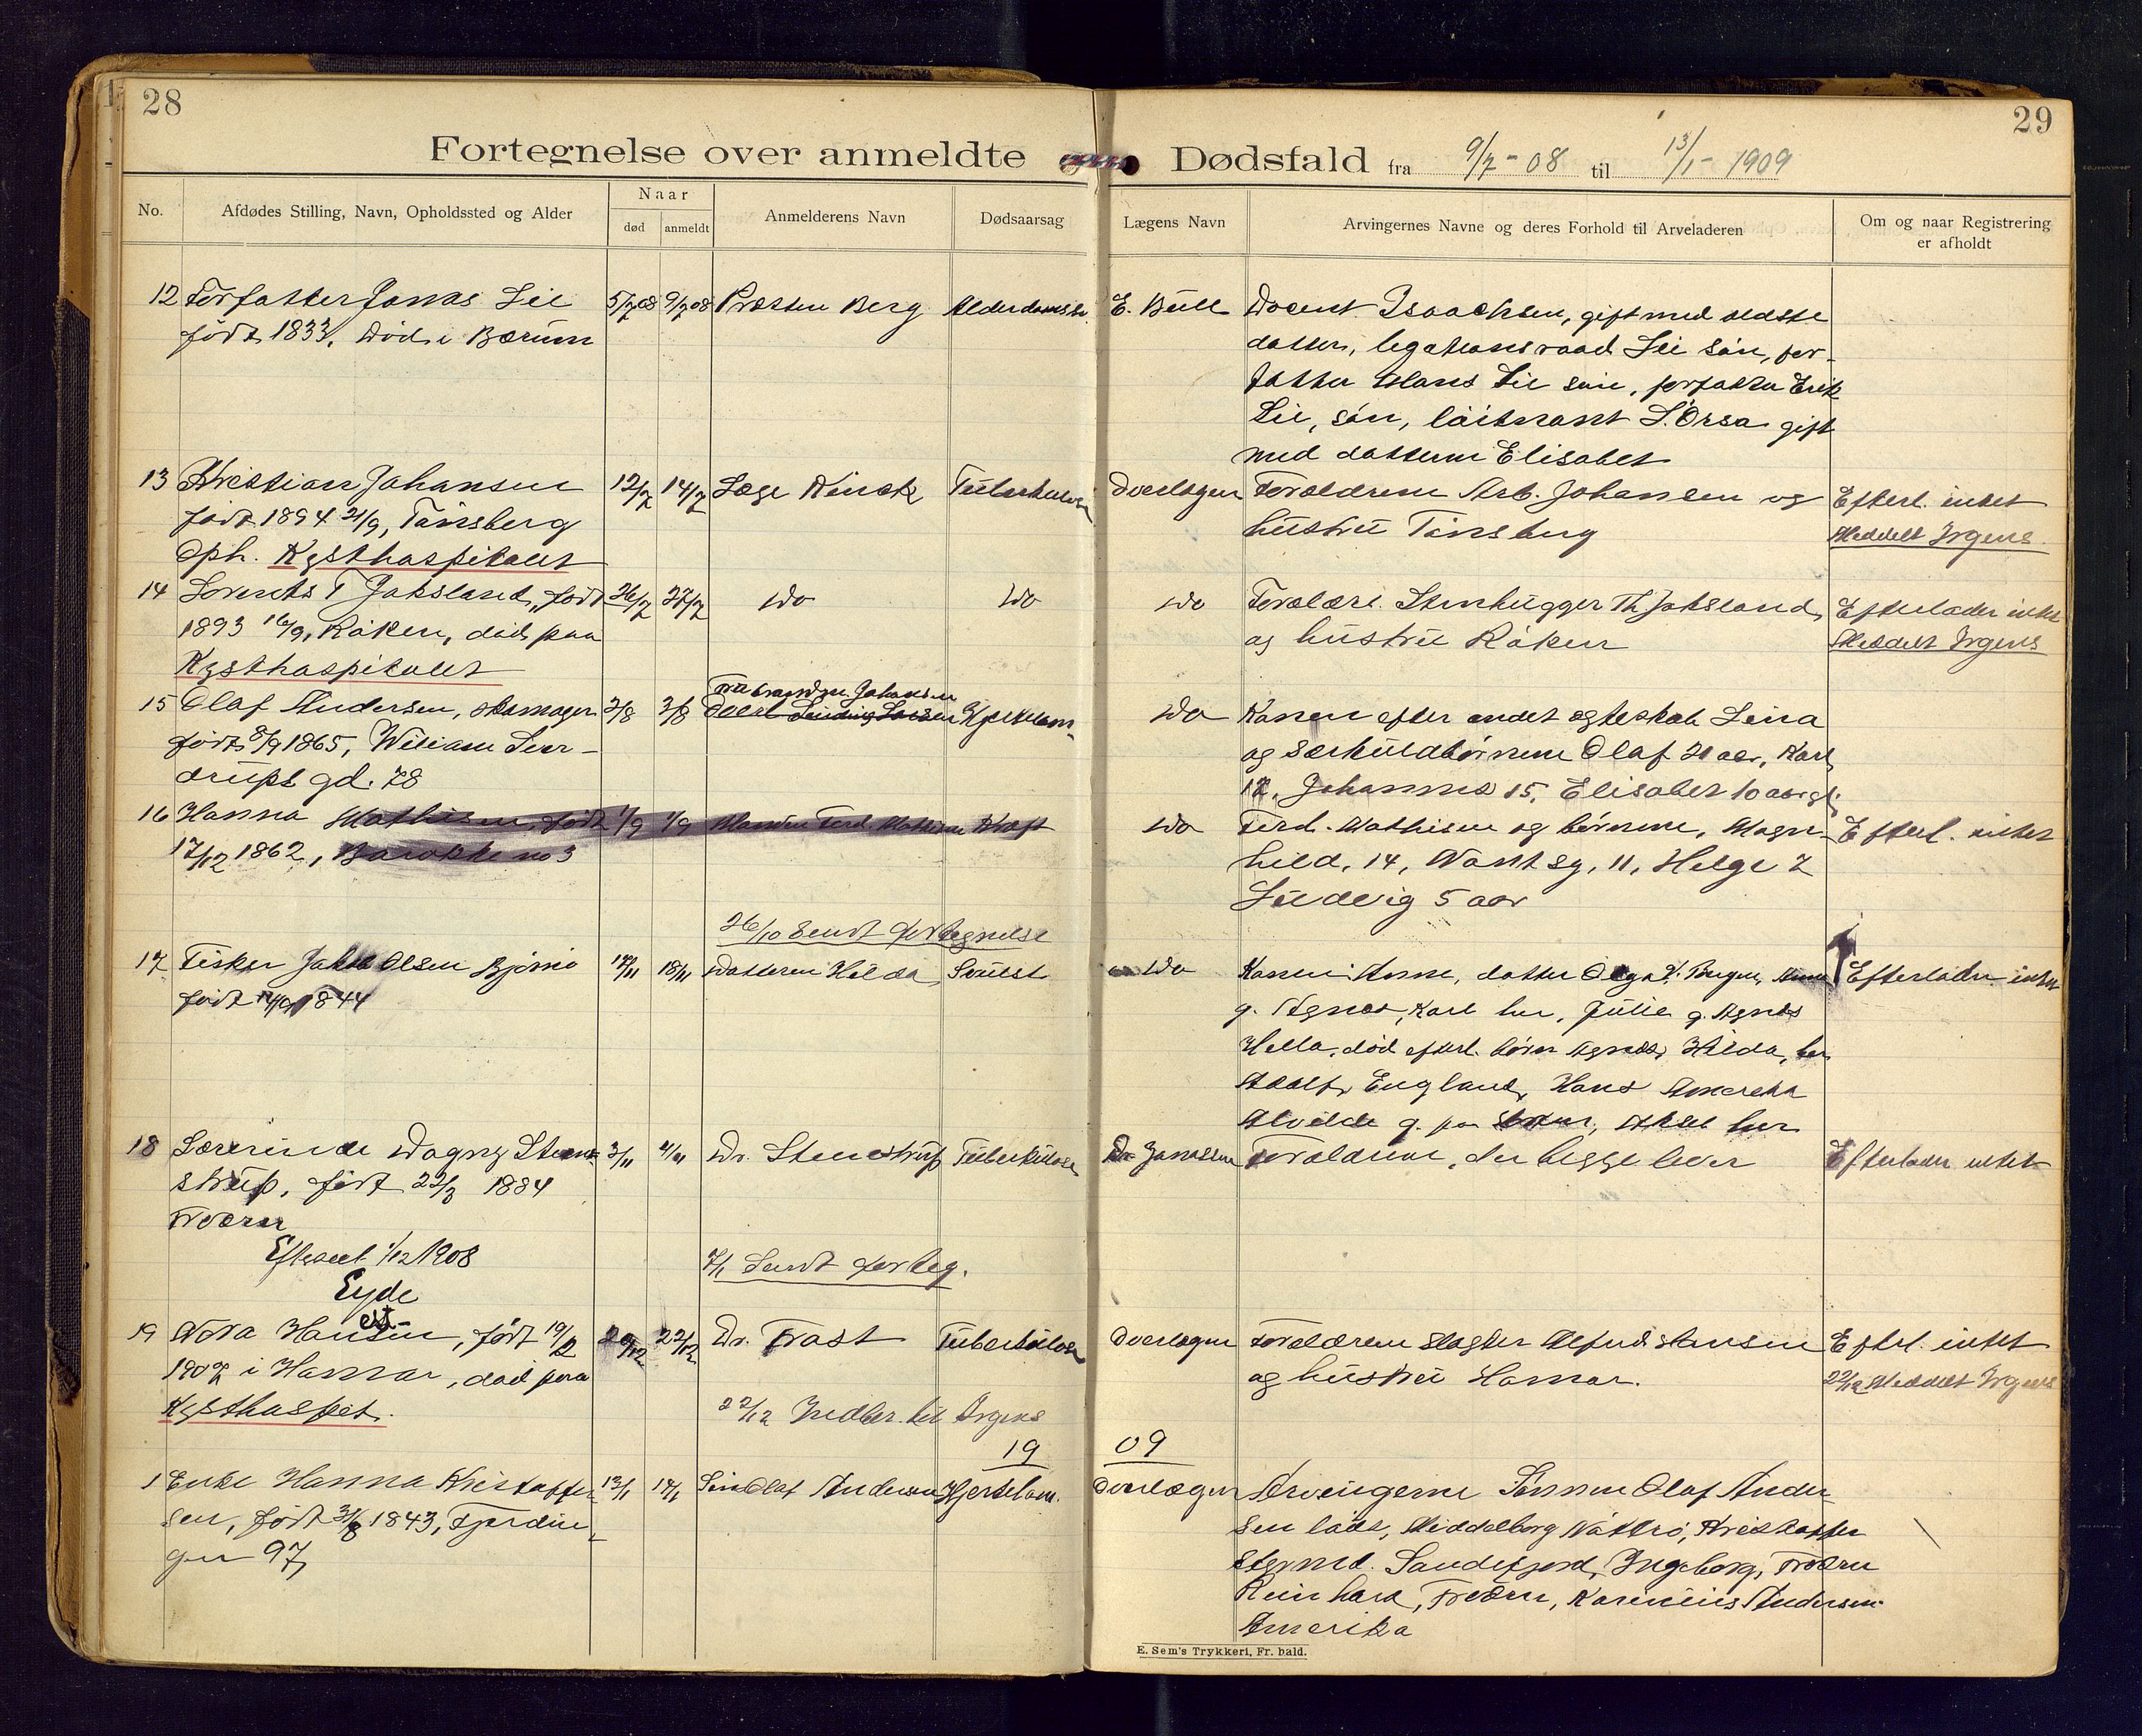 28
29
Fortegnelse over anmeldte Dødsfald fra 9/7-08 til 13/1-1909
No.
Afdødes Stilling, Navn, Opholdssted og Alder
Naar
død
anmeldt
Anmelderens Navn
Dødsaarsag
Lægens Navn
Arvingernes Navne og deres Forhold til Arveladeren
Om og naar Registrering
er afholdt
12 Forfatter Jonas Lie 5/7 08 9/7 08 Præsten Berg Alderdomssv. E. Bull Docent Isaachsen, gift med ældste
født 1833, Død i Bærum datter, legationsraad Lie søn, for-
fatter Mons Lie søn, forfatter Erik
Lie, søn, løitnant L'Orsa gift
med datteren Elisabet
13 Kristian Johansen 12/7 14/7 Læge Tuberkulose Overlægen Forældrene Arb. Johansen og Efterl. intet
født 1894 21/9, Tønsberg hustru Tønsberg Meddelt Irgens
Oph. Kysthospitalet
14 Lorents T Jaksland, født 26/7 27/7 Do Do Do Forældre. Stenhugger Th Jaksland Efterlader intet
1893 16/9, Røken, død paa og hustru Røken Meddelt Irgens
Kysthospitalet
Johansen
15 Olaf Andersen, skomager 2/8 3/8 Hjertelam- Do Konen efter andet egteskab Lina
født 8/9 1865, Wiliam Sver- og særkuldbørnene Olaf 20 aar, Karl
drups gd. 78 17, Johannes 15, Elisabet 10 aar gl.
16 Hanna Mathisen, født 1/9 1/9 Manden Ferd. Mathisen Kræft Do Ferd. Mathisen og børnene, Magn- Efterl. intet
17/12 1862, Barakke no 3 hild, 14, 11, Helge 7
Ludvig 5 aar
26/10 Sendt fortegnelse
17 Fisker Jakob Olsen Bjørnø 17/11 18/11 Datteren Hilda Svulst Do Konen Anne, datter Olga Efterlader intet
født 1844 g. Agnes, Karl her, Julie g. Agnes
Hella, død efterl. børn Agnes, Hilda, her
Adolf, England, Hans Amerika
g. paa Aksel her
18 Lærerinde Dagny Steen- 3/11 4/11 Dr. Stenstrup Tuberkulose Dr Jonassen Forældrene, der begge lever Efterlader intet
strup, født 22/3 1884
Fredærn
Efterset 1/12 1908
Eyde
7/1 Sendt forteg.
est.
19 Nora Hansen, født 19/2 20/12 22/12 Dr. Frost Tuberkulose Overlægen Forældrene slagter Alfred Hansen Efterl. intet
1907 i Hamar, død paa og hustru Hamar. 22/12 Meddelt Irgens
Kysthospit.
22/12 Indber. til Irgens
1909
1 Enke Hanna Kristoffer- 13/1 14/1 Søn Olaf Andersen Hjertelam. Overlægen Arvingerne Sønnen Olaf Ander-
sen, født 31/8 1843, Fjerdin- sen lods, Middelborg Nøtterø, Kristoffer
gen 97 Sandefjord, Ingeborg, Fredærn
Reinhard, Fredærn, Karinius Andersen
Amerika
E. Sem's Trykkeri, Fr. hald.